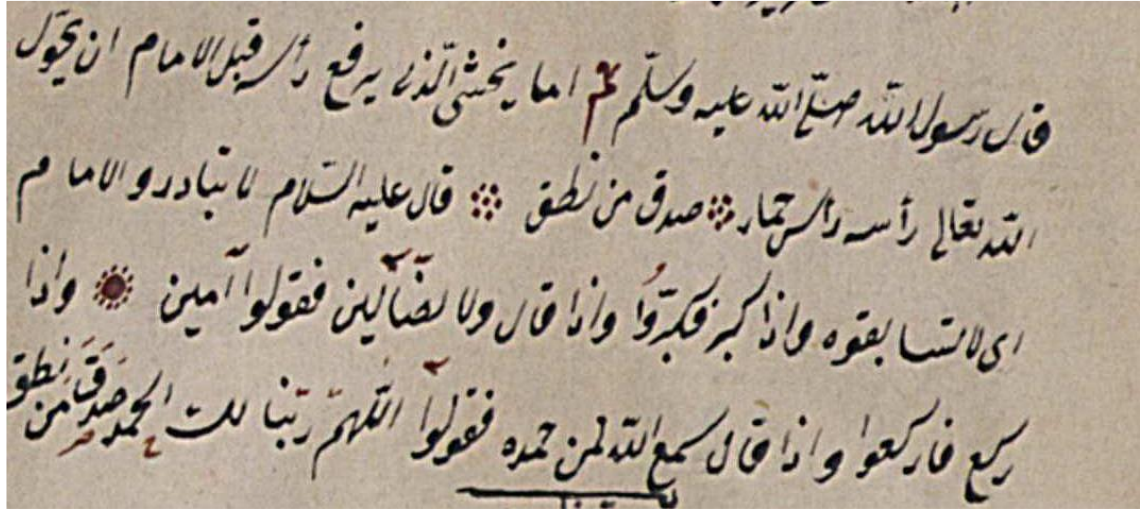 قال رسول الله صلّى الله عليه وسلّم اما يخشى الّذى يرفع رأسه قبل الامام ان يحوّل
الله تعالى رأسه رأس حمار صدق من نطق قال عليه السّلام لا تبادروا الامام
اى لا تسابقوه واذا كبر فكبّروُا واذا قال ولا لضّآلّين فقولوا آمين واذا
ركع فاركعوا واذا قال سمع الله لمن حمده فقولوا اللّهمّ ربّنا لك الحمد صَدَقَ مَن نطق